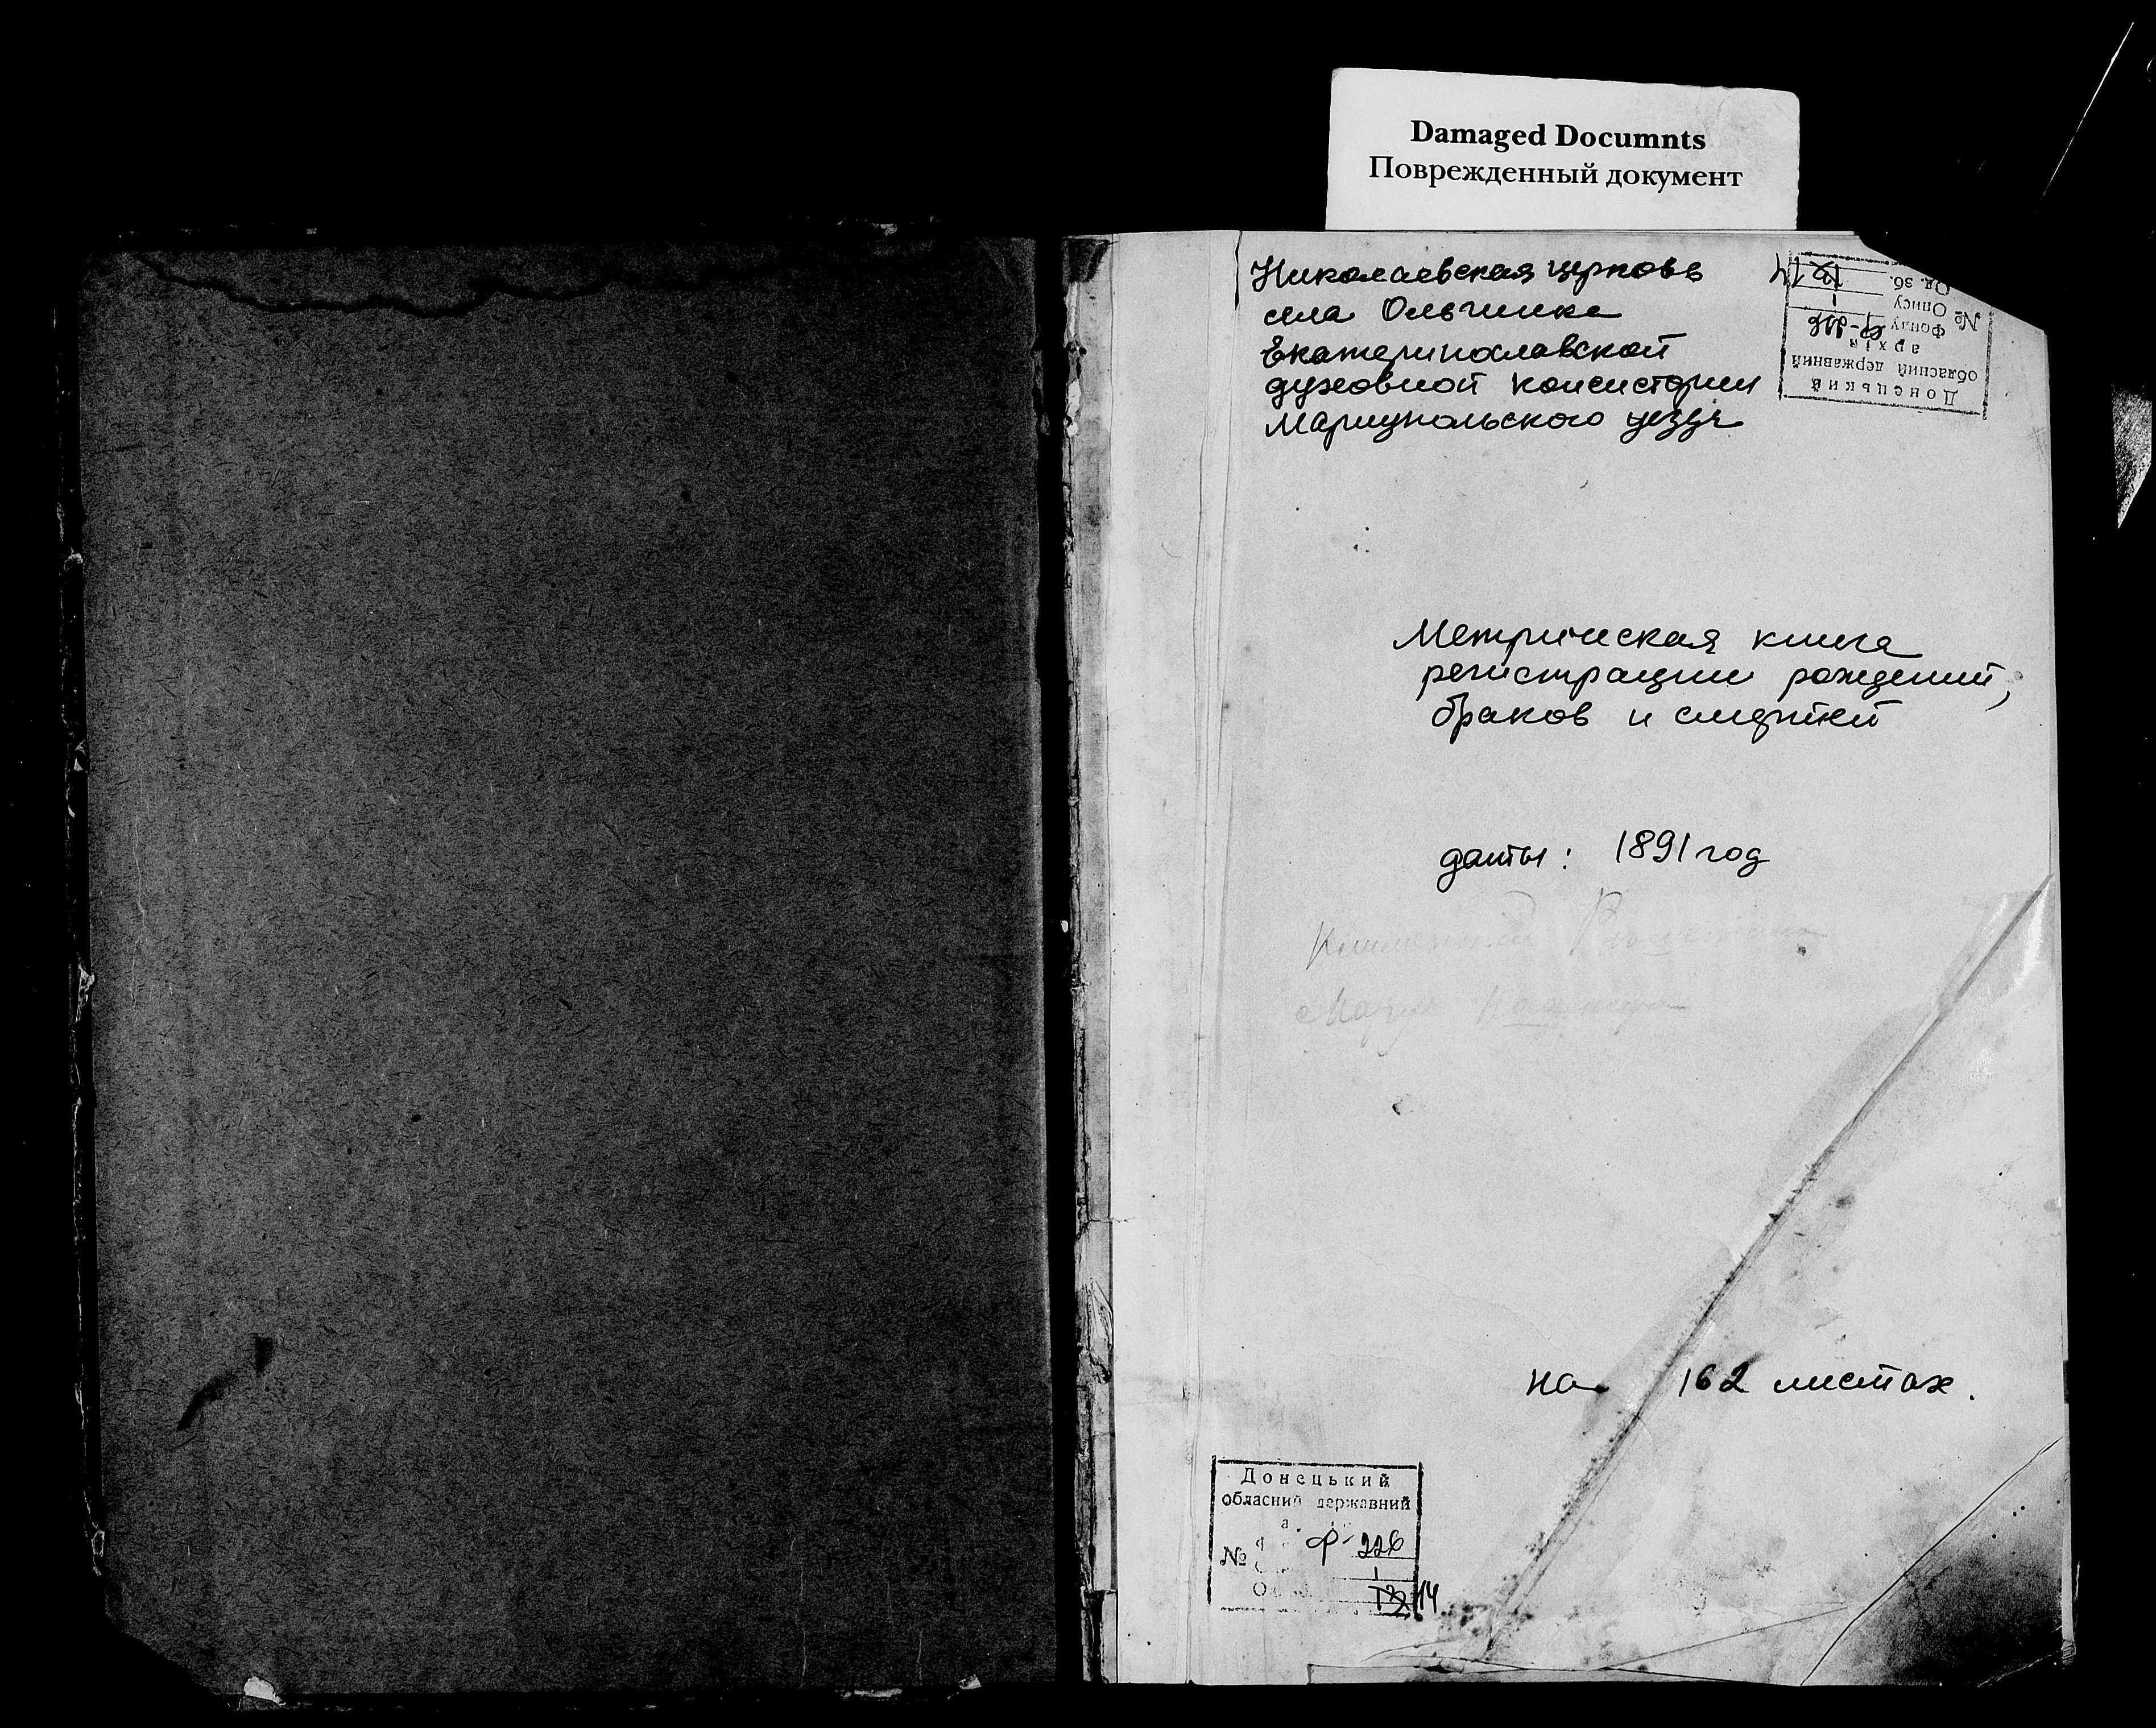 Damaged Documnts
Поврежденный документ
Николаевская церковь
села Ольгинка
Екатеринославской
духовной консистории
Мариупольского уезда
Донецький
обласний державний
архів
№ Фонду Ф-226
Опису 1
Од. зб. 14
Метрическая книга
регистрации рождений,
браков и смертей
даты: 1891 год
на 162 листах.
Донецький
обласний державний
№ Ф-226
1
14